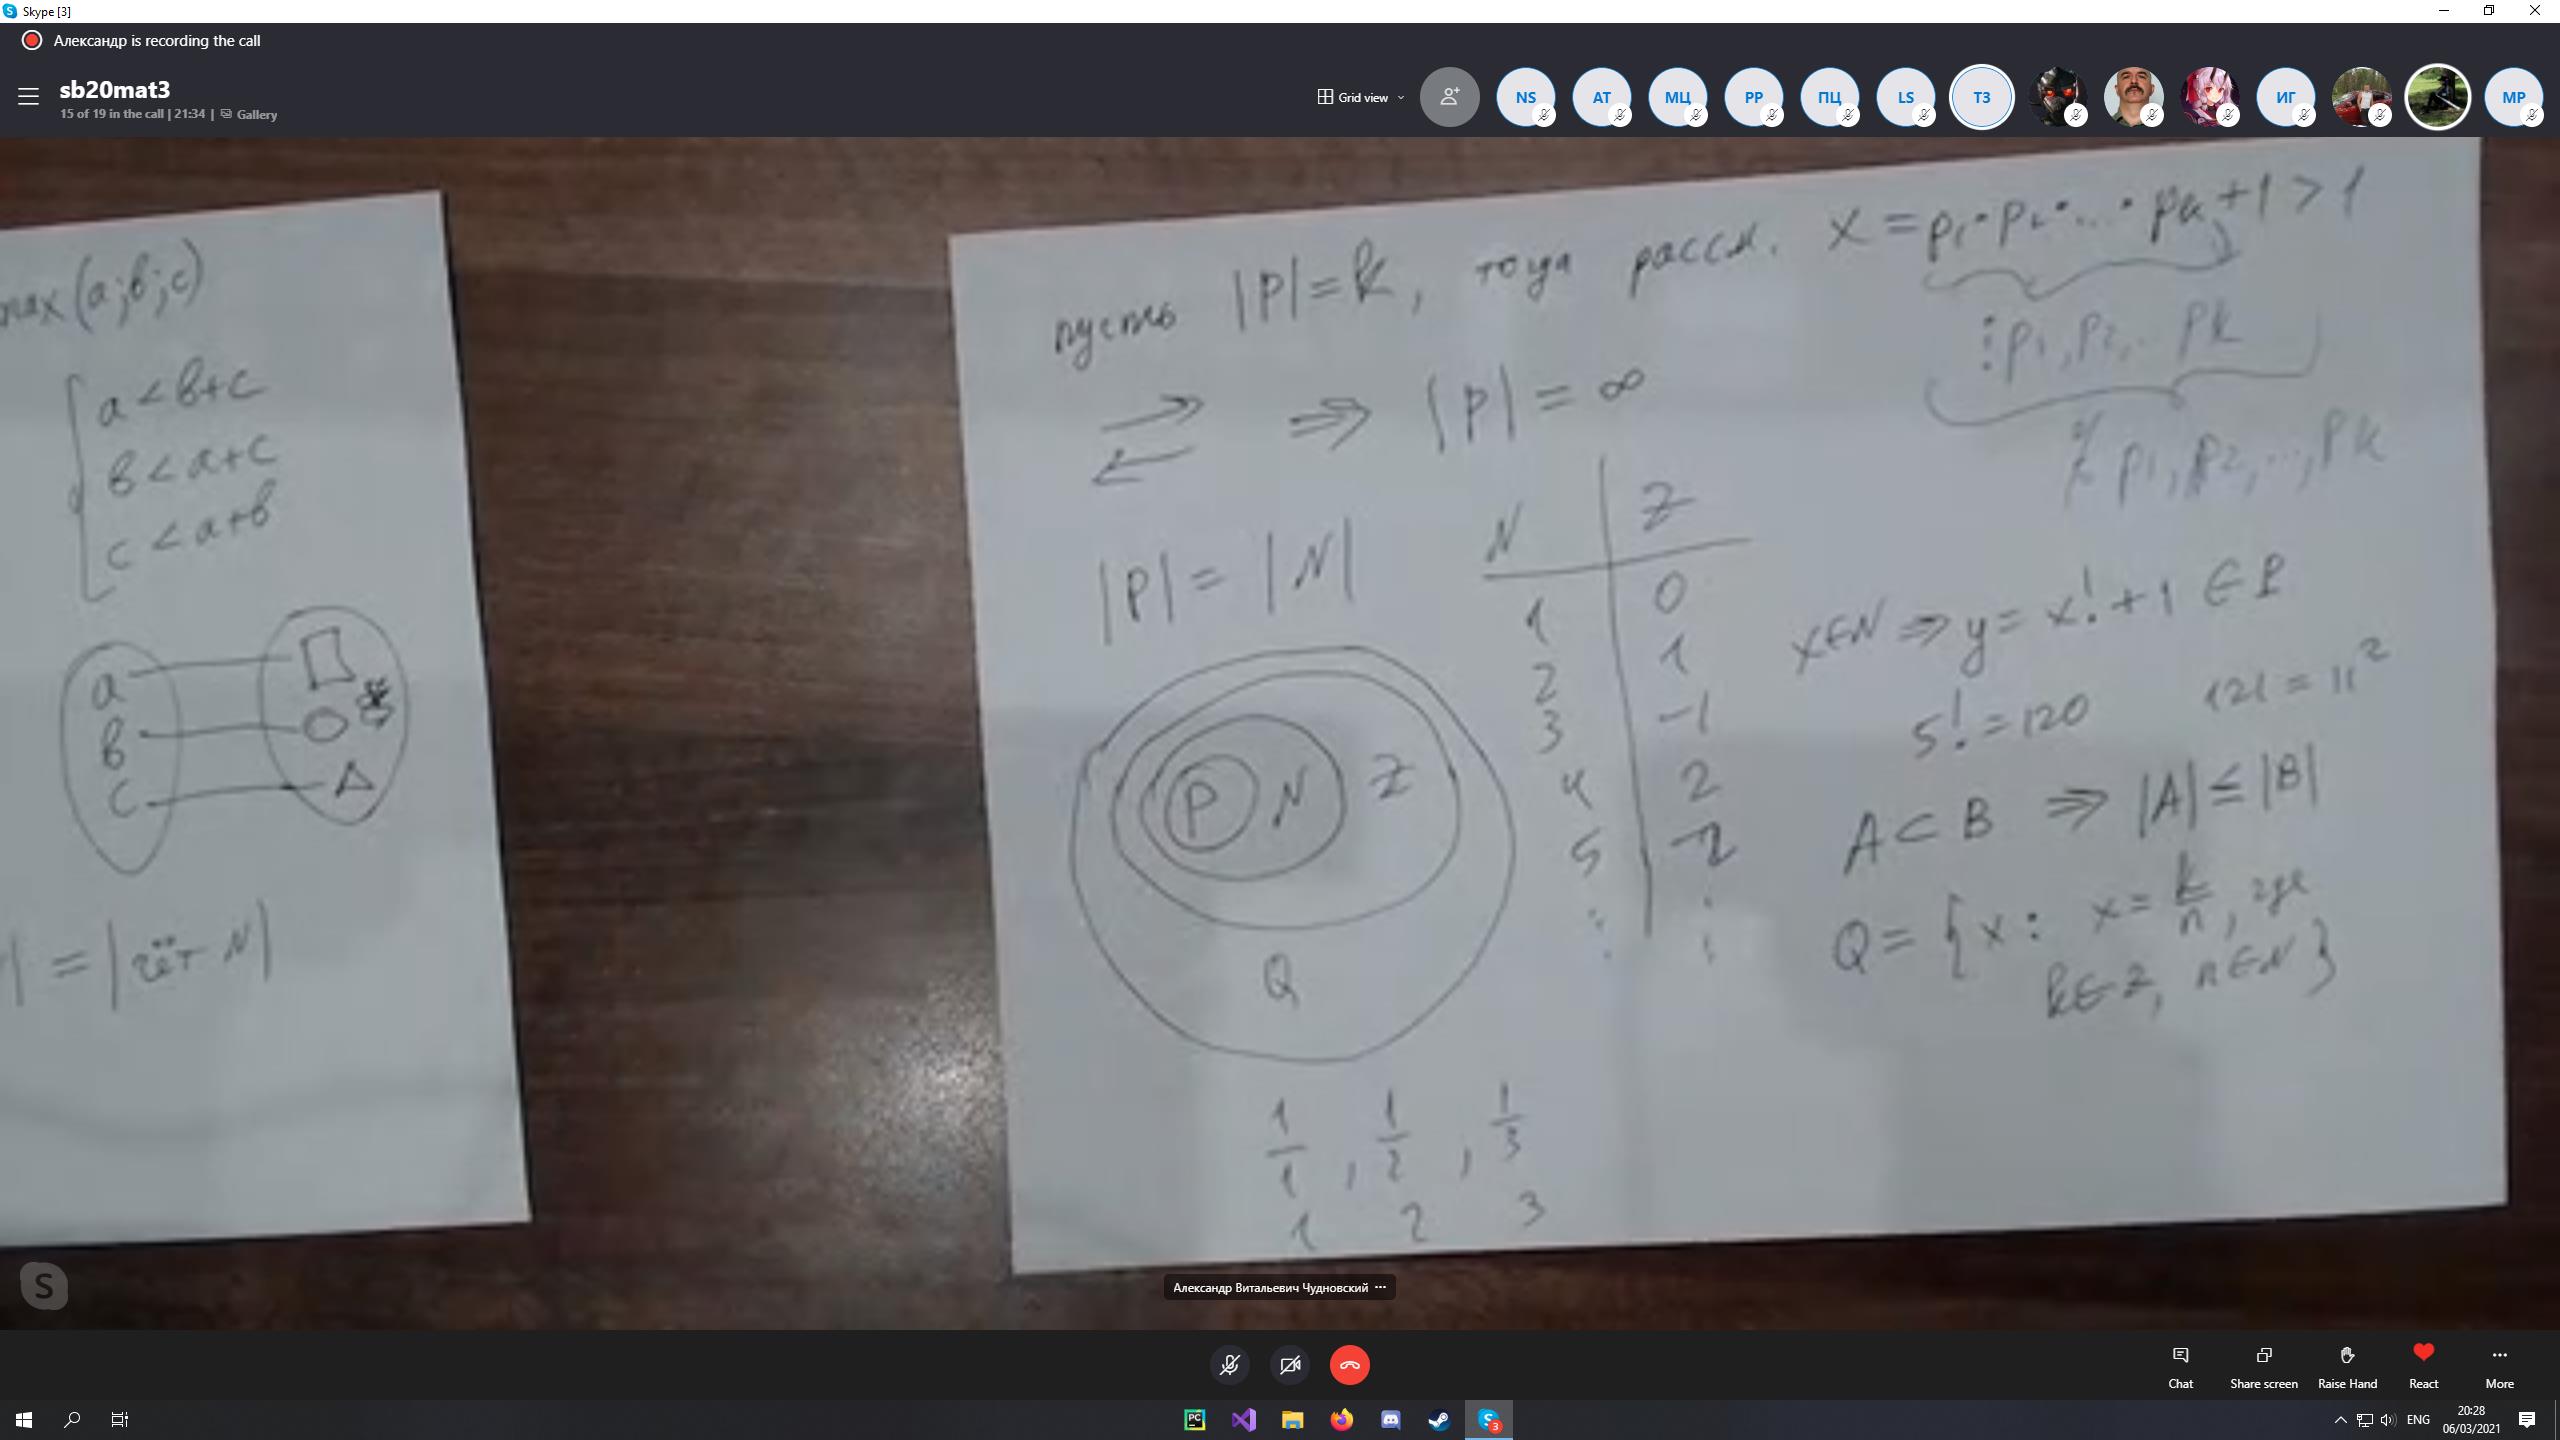 Skype [3]
Александр is recording the call
sb20mat3
15 of 19 in the call | 21:34 | Gallery
Grid view
NS AT МЦ PP ПЦ LS ТЗ ИГ MP
max(a;b;c)
a < b+c
b < a+c
c < a+b
a
b
c
| = |чёт N|
пусть |P|=k, тогда рассм. x = p₁·p₂·...·pₖ+1 > 1
⋮ p₁, p₂, .. pₖ
p₁, p₂, .., pₖ
⇒ |P| = ∞
|P| = |N|
N | Z
1 | 0
2 | 1
3 | -1
4 | 2
5 | -2
⋮ | ⋮
P N Z
Q
x∈N ⇒ y = x! + 1 ∈ P
5! = 120 121 = 11²
A ⊂ B ⇒ |A| ≤ |B|
Q = {x : x = k/n, где
k∈Z, n∈N}
1/1 , 1/2 , 1/3
1 2 3
Александр Витальевич Чудновский ...
Chat Share screen Raise Hand React More
PC
S 3
ENG
20:28
06/03/2021